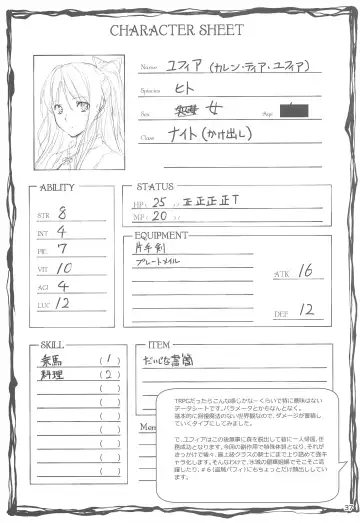 CHARACTER SHEET
Name ユフィア (カレン・ティア・ユフィア)
Species ヒト
Sex 女 Age
Class ナイト (かけ出し)
ABILITY
STR 8
INT 4
PIE 7
VIT 10
AGI 4
LUC 12
STATUS
HP: 25 // 正正正正T
MP: 20 //
EQUIPMENT
片手剣
プレートメイル
ATK 16
DEF 12
SKILL
乗馬 (1)
料理 (2)
ITEM
だいじな書簡
TRPGだったらこんな感じかなーくらいで特に意味はない
データシートです。パラメータとかなんとなく。
基本的に回復魔法のない世界観なので、ダメージが蓄積し
ていくタイプにしてみました。
で、ユフィアはこの後無事に森を脱出して砦に一人帰還。任
務成功となります。今回の副作用で特殊体質となり、それが
きっかけで後々、最上級クラスの騎士にまで上り詰めて強キ
ャラ化します。そんなわけで、
したり、#6
す。
37